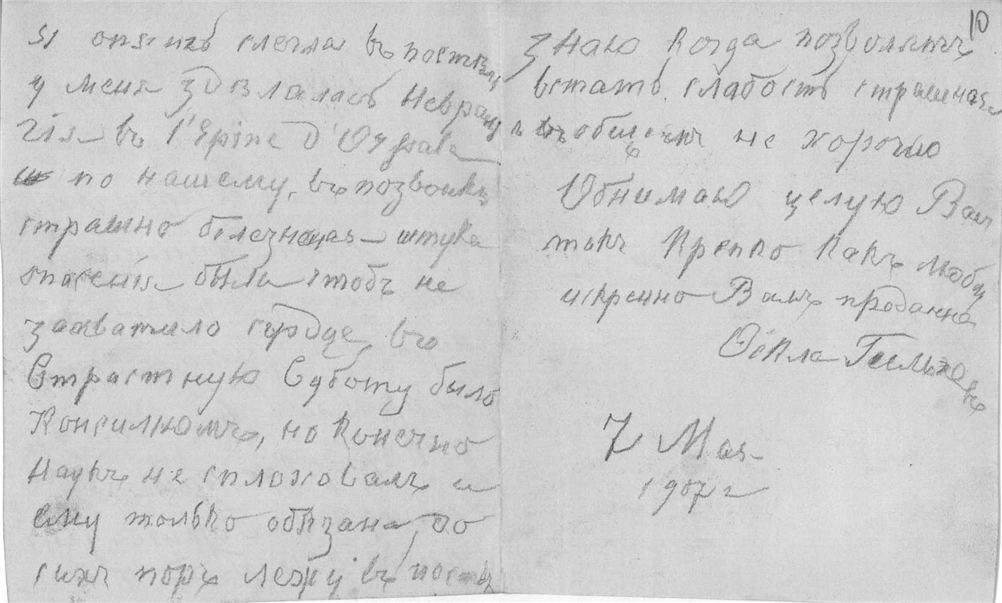 я опять слегла въ постель
у меня здѣлалась Невраль
гiя въ l'Epine D'Orsale
по нашему, въ позвонкѣ
страшно болезненая штука
опасенiя были чтобъ не
захватило сердце, въ
Страстную Суботу было
Консилiюмъ, но конечно
Наукъ не сплоховалъ и
ему только обязана, до
сихъ поръ лежу въ постѣ
10
знаю когда позволятъ
встать. слабость страшная
въобще не хорошо
Обнимаю целую Васъ
такъ крепко какъ люблю
искренно Вамъ преданная
Өёкла
7 Мая
1907 г